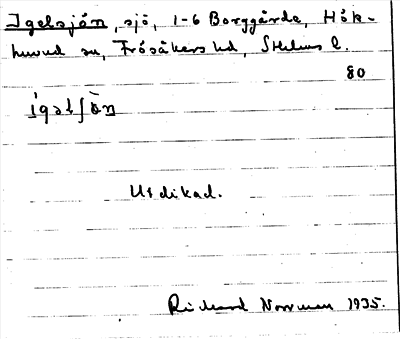 Igelsjön, sjö, 1-6 Borggårde, Hök-
huvud sn, Frösåkers hd, Sthlms l.
80
ígəlʃö̀n
Utdikad.
Rickard Norrman 1935.